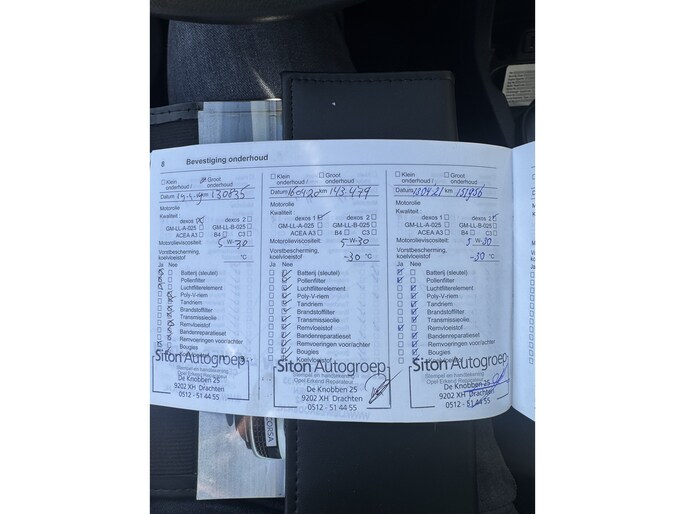 8 Bevestiging onderhoud
Klein onderhoud / Groot onderhoud
Datum km 130835
Motorolie
Kwaliteit
dexos 1 dexos 2
GM-LL-A-025 GM-LL-B-025
ACEA A3 B4 C3
Motorolieviscositeit: 5 W-30
Vorstbescherming, koelvloeistof °C
Ja Nee
Batterij (sleutel)
Pollenfilter
Luchtfilterelement
Poly-V-riem
Tandriem
Brandstoffilter
Transmissieolie
Remvloeistof
Bandenreparatieset
Remvoeringen voor/achter
Bougies
Koelvloeistof
Siton Autogroep
Stempel en handtekening
Opel Erkend Reparateur
De Knobben 25
9202 XH Drachten
0512 - 51 44 55
Klein onderhoud / Groot onderhoud
Datum 160420 km 143.479
Motorolie
Kwaliteit
dexos 1 dexos 2
GM-LL-A-025 GM-LL-B-025
ACEA A3 B4 C3
Motorolieviscositeit: 5 W-30
Vorstbescherming, koelvloeistof -30 °C
Ja Nee
Batterij (sleutel)
Pollenfilter
Luchtfilterelement
Poly-V-riem
Tandriem
Brandstoffilter
Transmissieolie
Remvloeistof
Bandenreparatieset
Remvoeringen voor/achter
Bougies
Koelvloeistof
Siton Autogroep
Stempel en handtekening
Opel Erkend Reparateur
De Knobben 25
9202 XH Drachten
0512 - 51 44 55
Klein onderhoud / Groot onderhoud
Datum 130421 km 151956
Motorolie
Kwaliteit
dexos 1 dexos 2
GM-LL-A-025 GM-LL-B-025
ACEA A3 B4 C3
Motorolieviscositeit: 5 W-30
Vorstbescherming, koelvloeistof -30 °C
Ja Nee
Batterij (sleutel)
Pollenfilter
Luchtfilterelement
Poly-V-riem
Tandriem
Brandstoffilter
Transmissieolie
Remvloeistof
Bandenreparatieset
Remvoeringen voor/achter
Bougies
Koelvloeistof
Siton Autogroep
Stempel en handtekening
Opel Erkend Reparateur
De Knobben 25
9202 XH Drachten
0512 - 51 44 55
CORSA